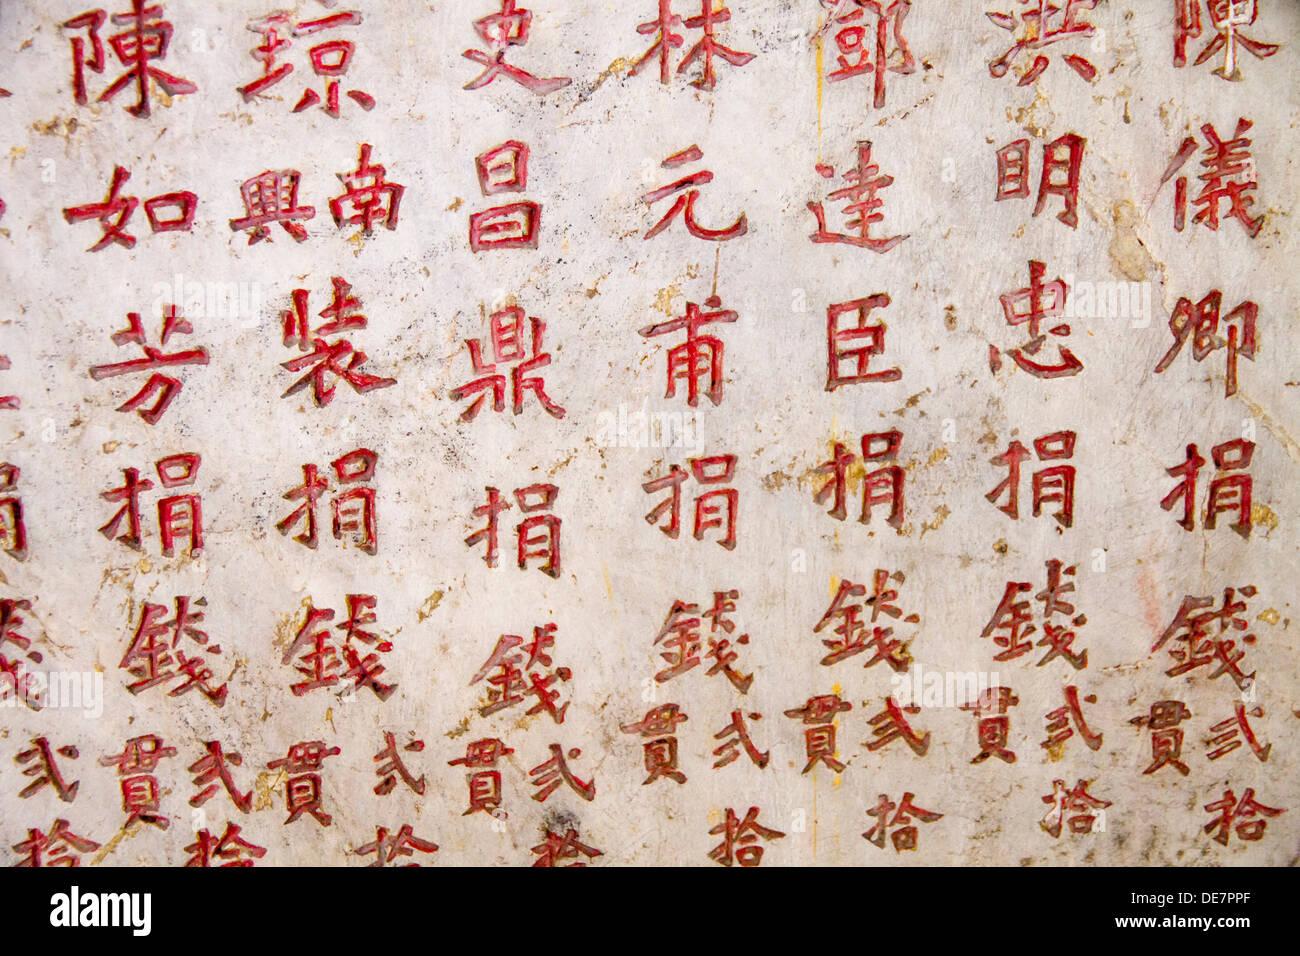 陳儀卿捐錢弍拾貫
洪明忠捐錢弍拾貫
鄧達臣捐錢弍拾貫
林元甫捐錢弍拾貫
史昌鼎捐錢弍拾貫
琼南興裝捐錢弍拾貫
陳如芳捐錢弍拾貫
捐錢弍拾
alamy
Image ID: DE7PPF
www.alamy.com